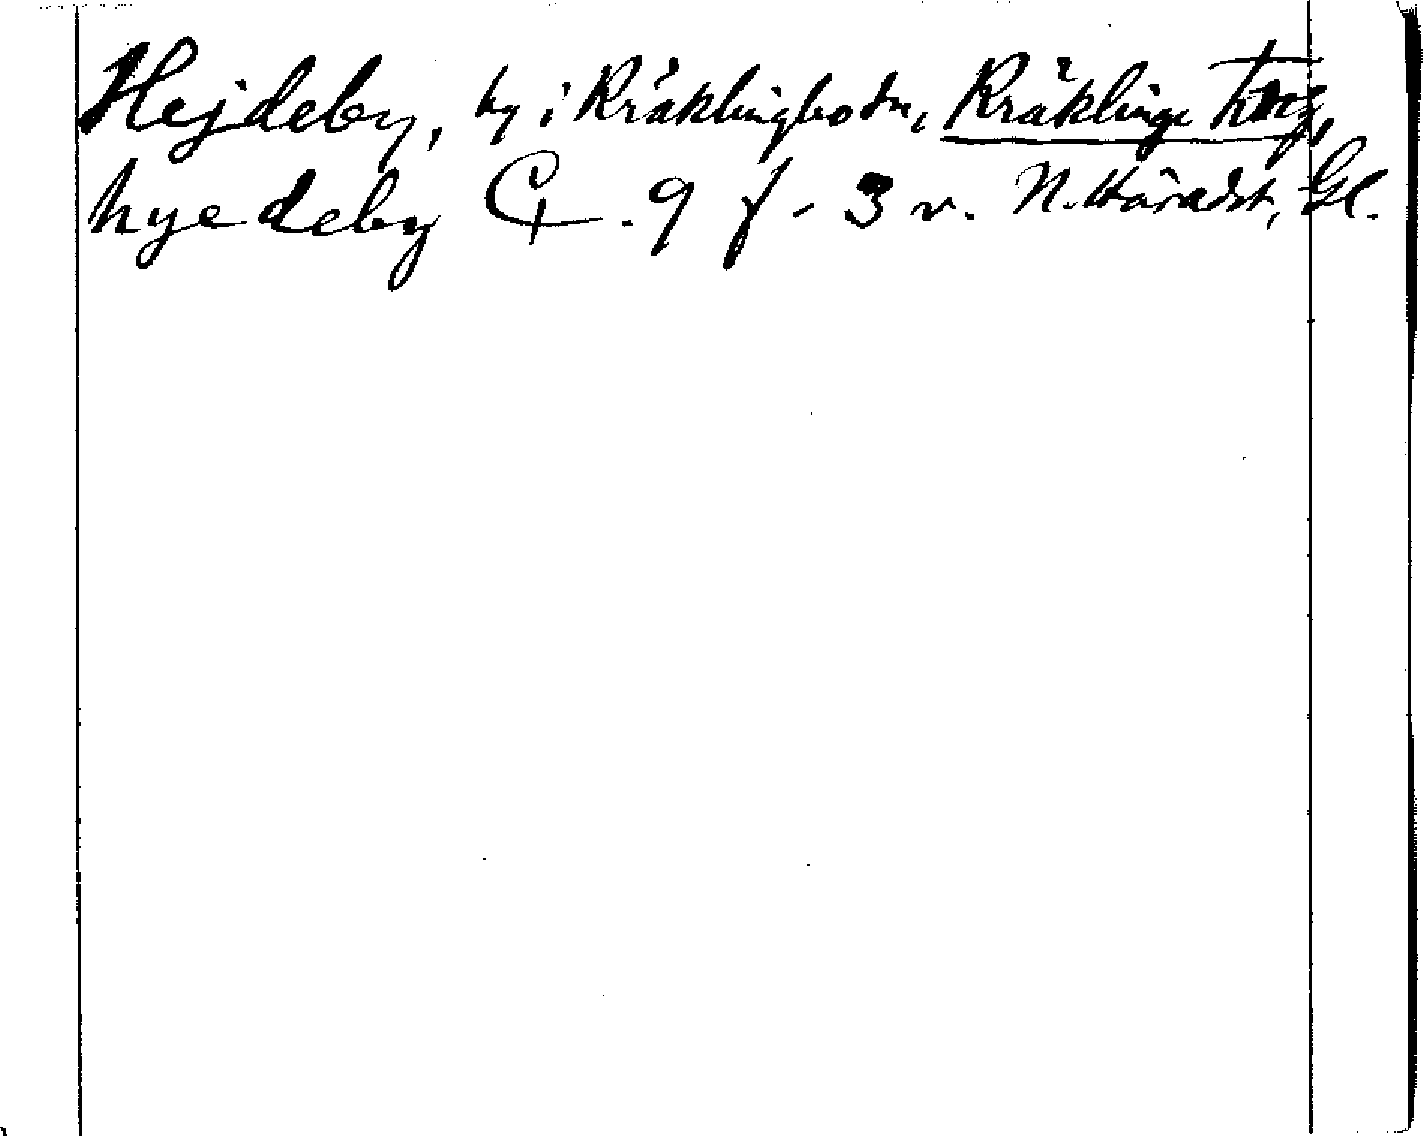 Hejdeby, by i Kräklingbo sn, Kräklinge ting,
hyedeby C . 9 f - 3 v. N. Häradet, Gl.